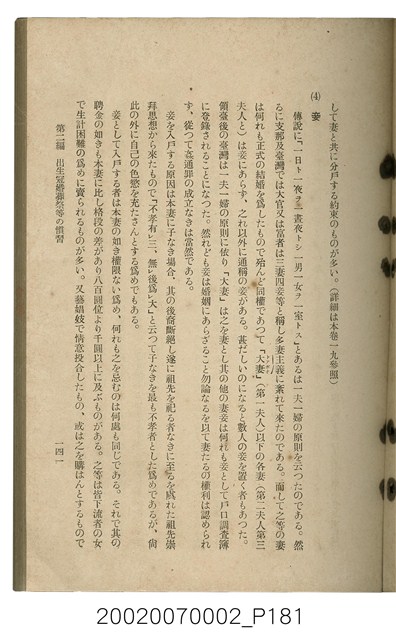 して妻と共に分戶する約束のものが多い。（詳細は本卷一九參照）
(4) 妾
傳說に「一日ト一夜ヲ晝夜トシ一男一女ヲ一室トス」とあるは一夫一婦の原則を云つたのである。然
るに支那及臺灣では大官又は富者は三妻四妾等と稱し多妻主義に紊れて來たのである。而して之等の妻
は何れも正式の結婚を爲したもので殆んど同權であつて「大妻」（第一夫人）以下の各妻（第二夫人第三
夫人と）は妾にあらず、之れ以外に通稱の妾がある。甚だしいのになると數人の妾を置く者もあつた。
領臺後の臺灣は一夫一婦の原則に依り「大妻」は之を妻とし其の他の妻妾は何れも妾として戶口調査簿
に登錄されることになつた。然れども妾は婚姻にあらざること勿論なるを以て妻たるの權利は認められ
ず、從つて姦通罪の成立なきは當然である。
妾を入戶する原因は本妻に子なき場合、其の後裔斷絕し遂に祖先を祀る者なきに至るを虞れた祖先崇
拜思想から來たもので「不孝有レ三、無レ後爲レ大」と云つて子なきを最も不孝者とした爲めであるが、尙
此の外に自己の色慾を充たさんとする爲めでもある。
妾として入戶する者は本妻の如き權限ない爲め、何れも之を忌むのは何處も同じである。それで其の
聘金の如きも本妻に比し格段の差があり八百圓位より千圓以上に及ぶものがある。之等は皆下流者の女
で生計困難の爲めに賣られるものが多い。又藝娼妓で情意投合したもの、或は之を購はんとするもので
第二編　出生冠婚葬祭等の慣習
一四一
20020070002_P181